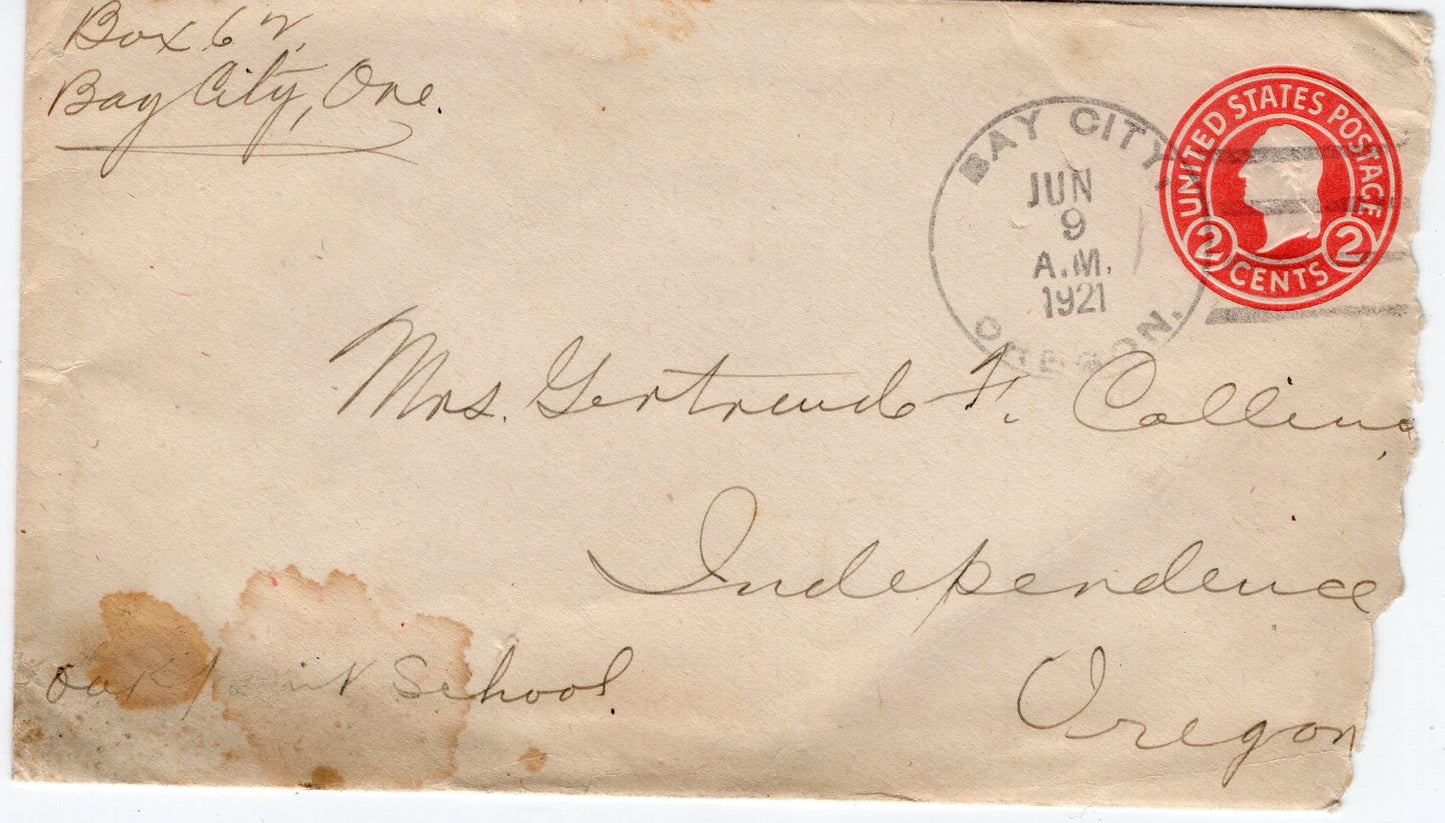 Box 62,
Bay City, Ore.
BAY CITY,
JUN
9
A.M.
1921
OREGON.
UNITED STATES POSTAGE
2 CENTS 2
Mrs. Gertrude F. Collins,
Independence
Oregon
Oak Point School.